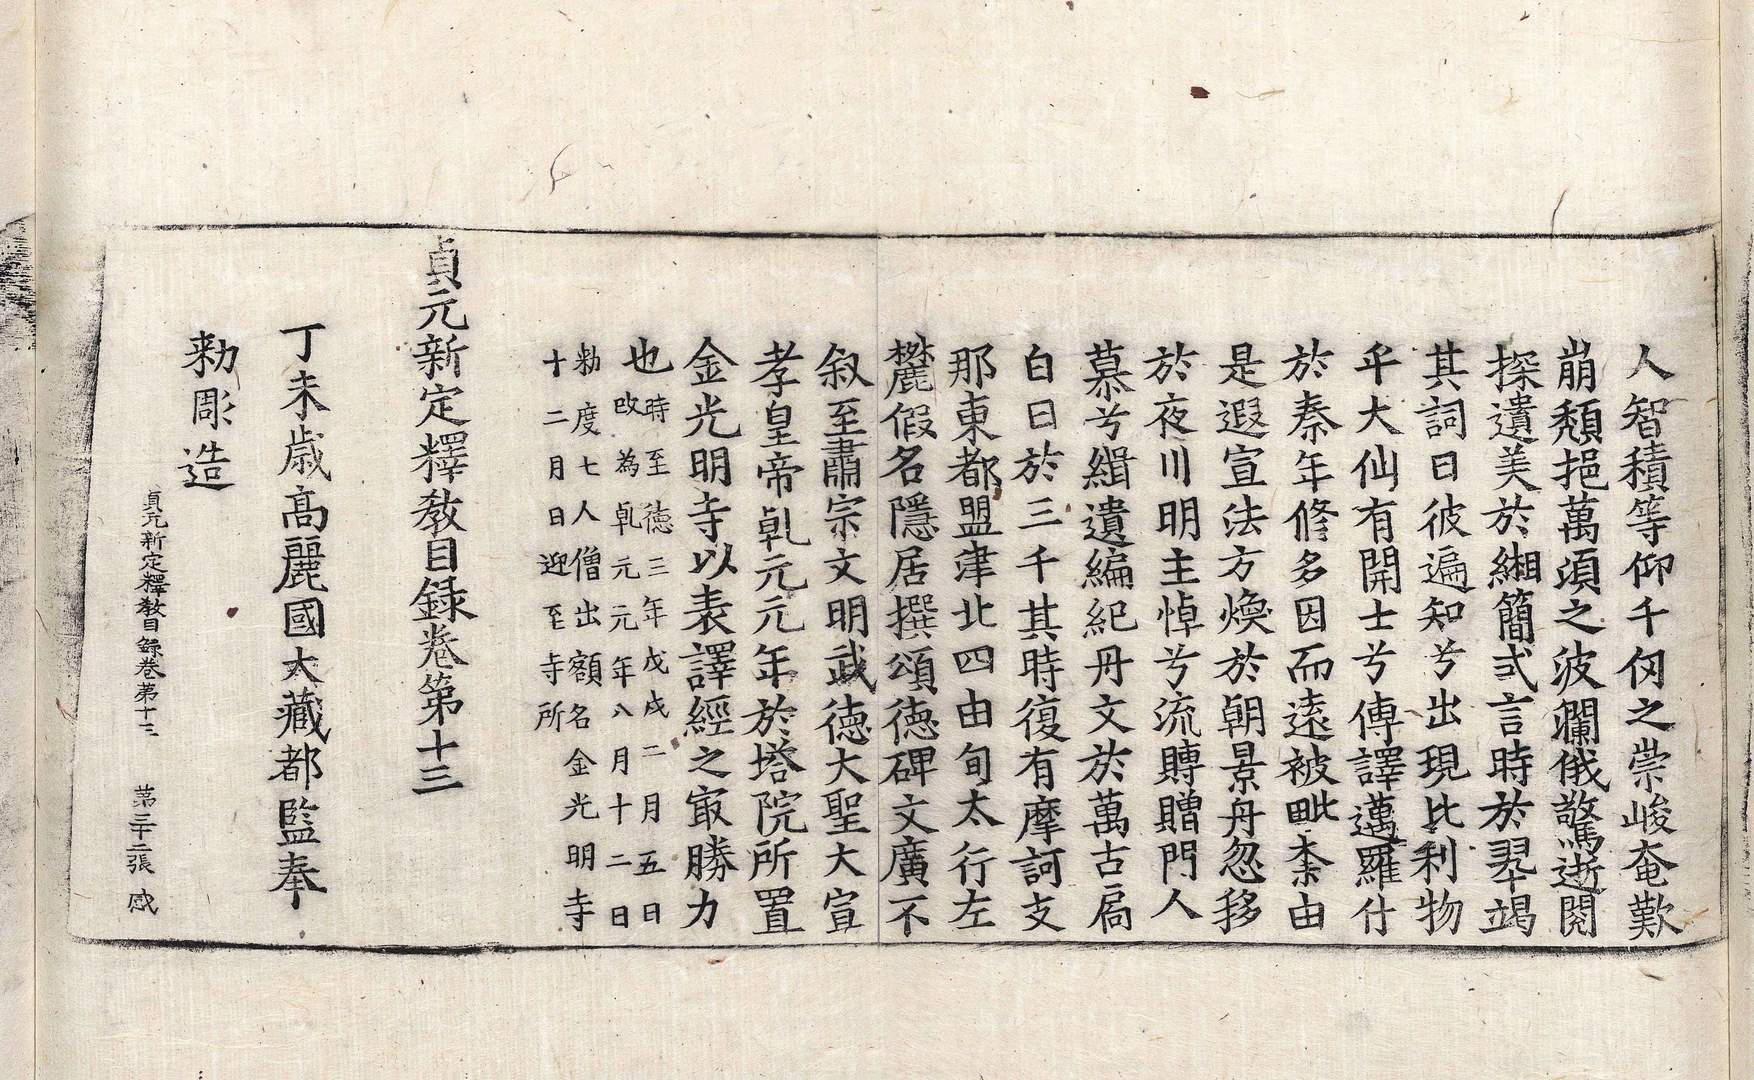 人智積等仰千仞之崇峻奄歎
崩頹挹萬頃之波瀾俄驚逝閱
採遺美於緗簡式言時於翠竭
其詞曰彼遍知兮出現比利物
乎大仙有開士兮傳譯邁羅什
於秦年修多因而遠被毗柰由
是遐宣法方煥於朝景舟忽移
於夜川明主悼兮流賻贈門人
慕兮緝遺編紀丹文於萬古扃
白日於三千其時復有摩訶支
那東都盟津北四由旬太行左
麓假名隱居撰頌德碑文廣不
叙至肅宗文明武德大聖大宣
孝皇帝乹元元年於塔院所置
金光明寺以表譯經之㝡勝力
也時至德三年戊戌二月五日
改為乹元元年八月十二日
勑度七人僧出額名金光明寺
十二月日迎至寺所
貞元新定釋教目録卷第十三
丁未歲高麗國大藏都監奉
勑彫造
貞元新定釋教目録卷第十三 第三十二張 感